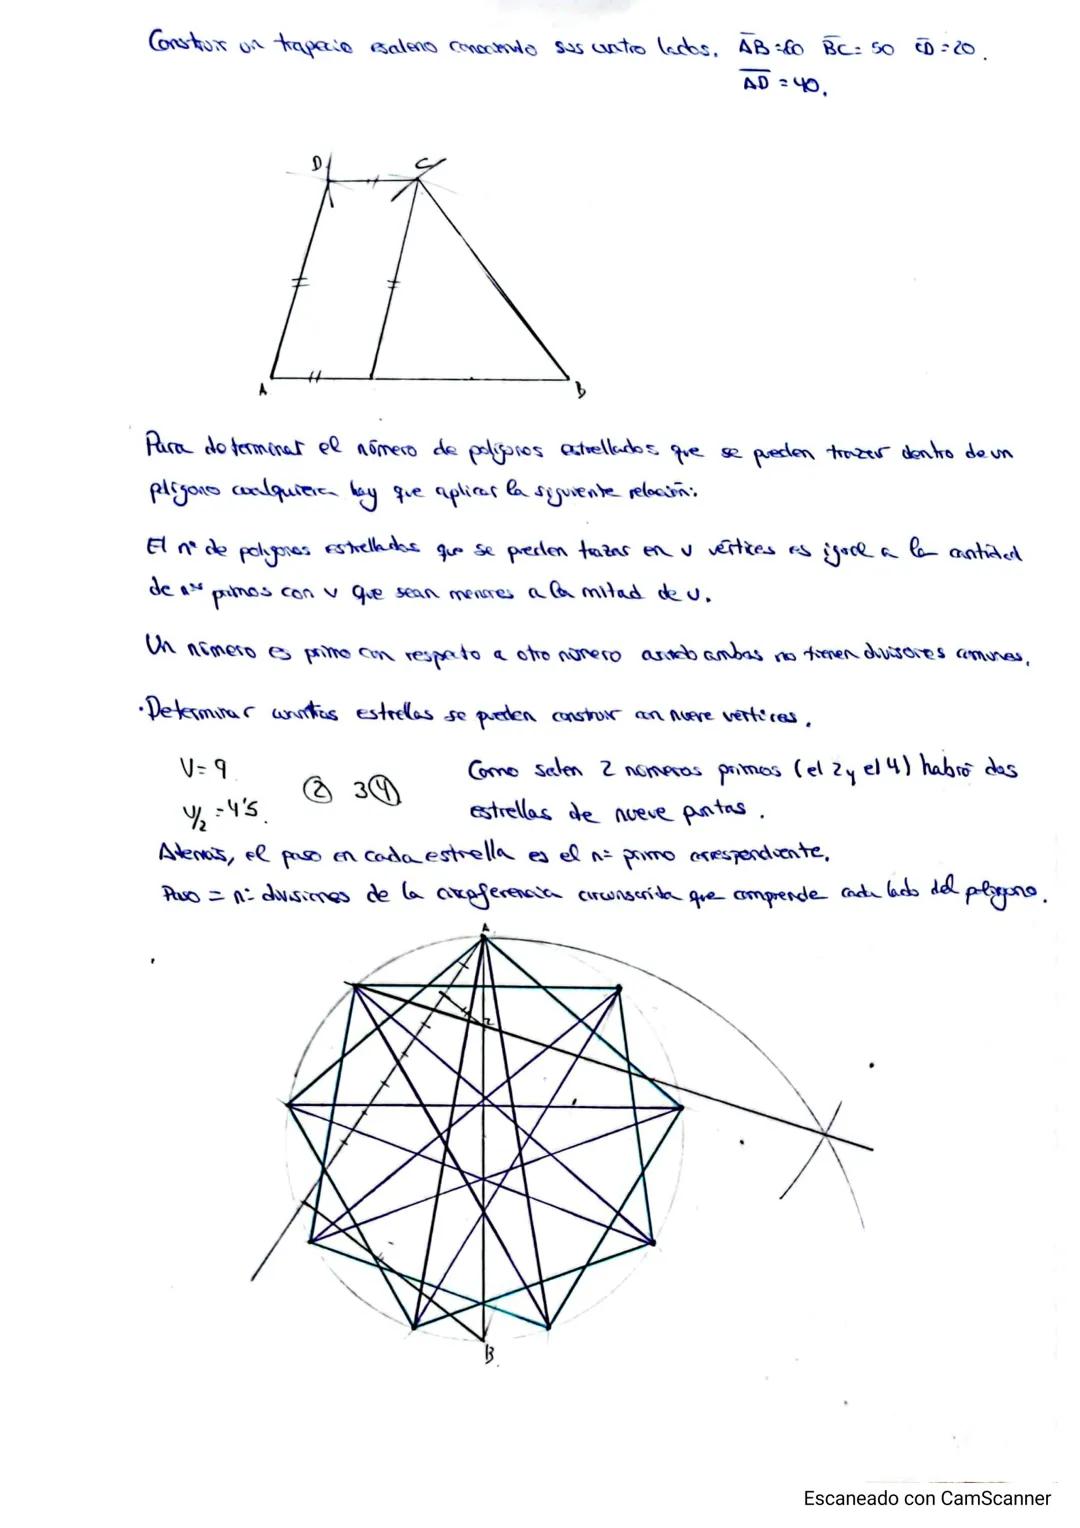 Construir un trapecio escaleno conociendo sus cuatro lados. AB=60 BC=50 CD=20.
AD=40.
D C
A B
Para determinar el número de polígonos estrellados que se pueden trazar dentro de un
polígono cualquiera hay que aplicar la siguiente relación:
El nº de polígonos estrellados que se pueden trazar en v vértices es igual a la cantidad
de nos primos con v que sean menores a la mitad de v.
Un número es primo con respecto a otro número cuando ambos no tienen divisores comunes.
·Determinar cuántas estrellas se pueden construir con nueve vértices.
V=9 ② 3 ④ Como salen 2 números primos (el 2 y el 4) habrá dos
V/2=4'5. estrellas de nueve puntas.
Además, el paso en cada estrella es el nº primo correspondiente.
Paso = nº divisiones de la circunferencia circunscrita que comprende cada lado del polígono.
A
2
B
Escaneado con CamScanner